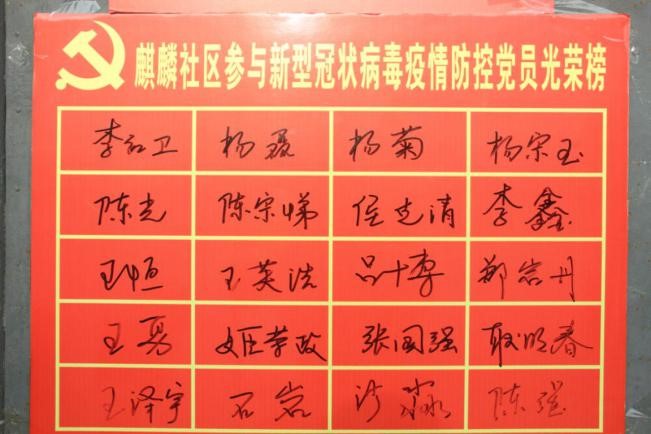 麒麟社区参与新型冠状病毒疫情防控党员光荣榜
李红卫 杨磊 杨菊 杨宗玉
陈光 陈宗娣 侯志清 李鑫
王恒 王英浩 郑岩丹
王勇 姬荣政 张国强 耿明春
王泽宇 石岩 沙淼 陈强